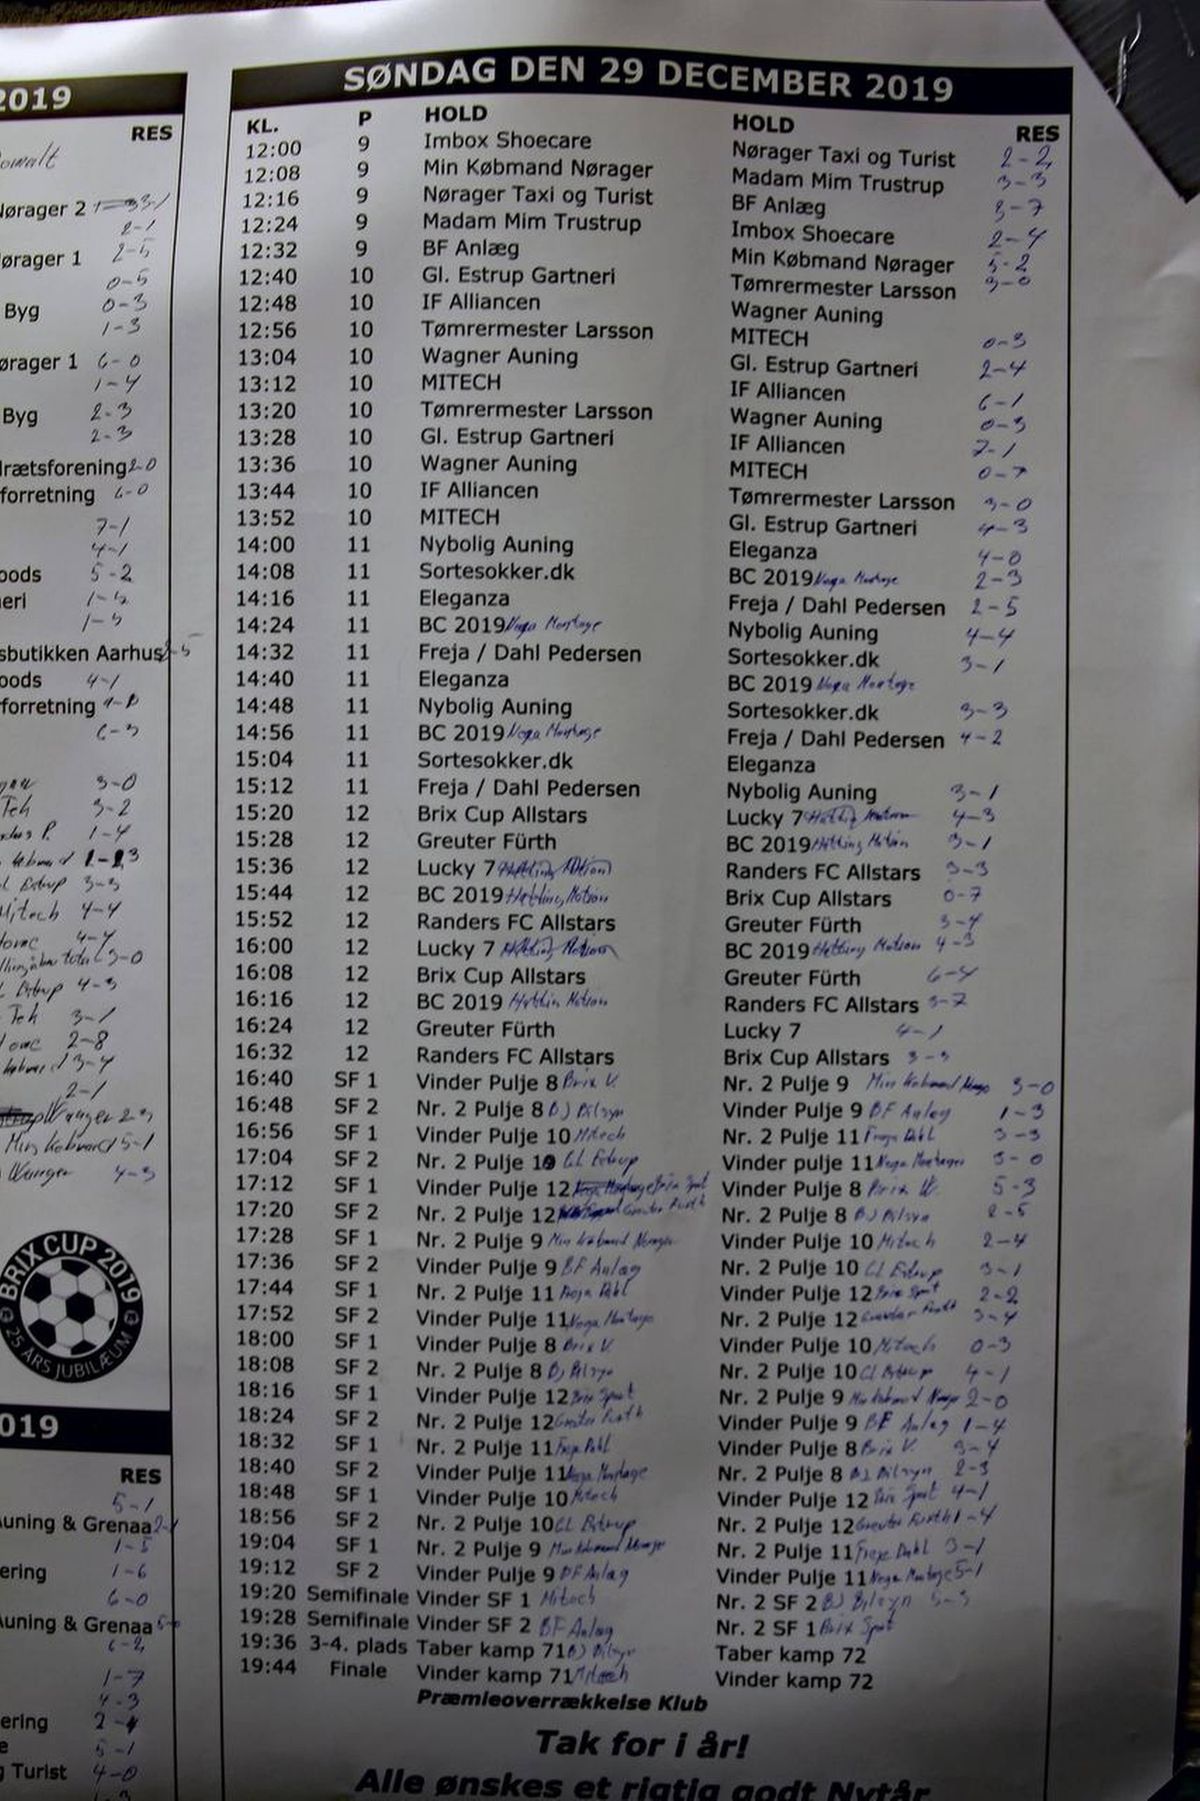 2019
RES
Nørager 2
2-1
ørager 1 2-5
0-5
Byg 0-3
1-3
ørager 1 6-0
1-4
Byg 2-3
2-3
drætsforening 2-0
forretning 6-0
7-1
4-1
oods 5-2
neri
sbutikken Aarhus
oods 4-1
forretning
6-3
3-0
Teh 3-2
1-4
3-3
Mitech 4-4
4-4
3-0
4-3
Teh 3-1
2-8
3-4
2-1
5-1
4-3
BRIX CUP 2019
25 ÅRS JUBILÆUM
019
RES
5-1
Auning & Grenaa
1-5
ering 1-6
6-0
Auning & Grenaa
6-2
1-7
4-3
ering
e 5-1
g Turist 4-0
SØNDAG DEN 29 DECEMBER 2019
KL. P HOLD HOLD RES
12:00 9 Imbox Shoecare Nørager Taxi og Turist 2-2
12:08 9 Min Købmand Nørager Madam Mim Trustrup 3-3
12:16 9 Nørager Taxi og Turist BF Anlæg 3-7
12:24 9 Madam Mim Trustrup Imbox Shoecare 2-4
12:32 9 BF Anlæg Min Købmand Nørager 5-2
12:40 10 Gl. Estrup Gartneri Tømrermester Larsson 3-0
12:48 10 IF Alliancen Wagner Auning
12:56 10 Tømrermester Larsson MITECH 0-3
13:04 10 Wagner Auning Gl. Estrup Gartneri 2-4
13:12 10 MITECH IF Alliancen 6-1
13:20 10 Tømrermester Larsson Wagner Auning 0-3
13:28 10 Gl. Estrup Gartneri IF Alliancen 7-1
13:36 10 Wagner Auning MITECH 0-7
13:44 10 IF Alliancen Tømrermester Larsson 3-0
13:52 10 MITECH Gl. Estrup Gartneri 4-3
14:00 11 Nybolig Auning Eleganza 4-0
14:08 11 Sortesokker.dk BC 2019 Noga Montage 2-3
14:16 11 Eleganza Freja / Dahl Pedersen 2-5
14:24 11 BC 2019 Noga Montage Nybolig Auning 4-4
14:32 11 Freja / Dahl Pedersen Sortesokker.dk 3-1
14:40 11 Eleganza BC 2019 Noga Montage
14:48 11 Nybolig Auning Sortesokker.dk 3-3
14:56 11 BC 2019 Noga Montage Freja / Dahl Pedersen 4-2
15:04 11 Sortesokker.dk Eleganza
15:12 11 Freja / Dahl Pedersen Nybolig Auning 3-1
15:20 12 Brix Cup Allstars Lucky 7 4-3
15:28 12 Greuter Fürth BC 2019 Hetting Motion 3-1
15:36 12 Lucky 7 Randers FC Allstars 3-3
15:44 12 BC 2019 Hetting Motion Brix Cup Allstars 0-7
15:52 12 Randers FC Allstars Greuter Fürth 3-4
16:00 12 Lucky 7 BC 2019 Hetting Motion 4-3
16:08 12 Brix Cup Allstars Greuter Fürth 6-4
16:16 12 BC 2019 Hettin Motion Randers FC Allstars 3-7
16:24 12 Greuter Fürth Lucky 7 4-1
16:32 12 Randers FC Allstars Brix Cup Allstars 3-3
16:40 SF 1 Vinder Pulje 8 Brix V. Nr. 2 Pulje 9 Min Købmand 3-0
16:48 SF 2 Nr. 2 Pulje 8 BJ Bilsyn Vinder Pulje 9 BF Anlæg 1-3
16:56 SF 1 Vinder Pulje 10 Mitech Nr. 2 Pulje 11 Freja Dahl 3-3
17:04 SF 2 Nr. 2 Pulje 10 Gl Estrup Vinder pulje 11 Noga Montage 3-0
17:12 SF 1 Vinder Pulje 12 Brix Spot Vinder Pulje 8 Brix V. 5-3
17:20 SF 2 Nr. 2 Pulje 12 Greuter Fürth Nr. 2 Pulje 8 BJ Bilsyn 2-5
17:28 SF 1 Nr. 2 Pulje 9 Min Købmand Nørager Vinder Pulje 10 Mitech 2-4
17:36 SF 2 Vinder Pulje 9 BF Anlæg Nr. 2 Pulje 10 Gl Estrup 3-1
17:44 SF 1 Nr. 2 Pulje 11 Freja Dahl Vinder Pulje 12 Brix Spot 2-2
17:52 SF 2 Vinder Pulje 11 Noga Montage Nr. 2 Pulje 12 Greuter Fürth 3-4
18:00 SF 1 Vinder Pulje 8 Brix V. Vinder Pulje 10 Mitech 0-3
18:08 SF 2 Nr. 2 Pulje 8 BJ Bilsyn Nr. 2 Pulje 10 Gl Estrup 4-1
18:16 SF 1 Vinder Pulje 12 Brix Spot Nr. 2 Pulje 9 Min Købmand 2-0
18:24 SF 2 Nr. 2 Pulje 12 Greuter Fürth Vinder Pulje 9 BF Anlæg 1-4
18:32 SF 1 Nr. 2 Pulje 11 Freja Dahl Vinder Pulje 8 Brix V. 3-4
18:40 SF 2 Vinder Pulje 11 Noga Montage Nr. 2 Pulje 8 BJ Bilsyn 2-3
18:48 SF 1 Vinder Pulje 10 Mitech Vinder Pulje 12 Brix Spot 4-1
18:56 SF 2 Nr. 2 Pulje 10 Gl Estrup Nr. 2 Pulje 12 Greuter Fürth 1-4
19:04 SF 1 Nr. 2 Pulje 9 Min Købmand Nr. 2 Pulje 11 Freja Dahl 3-1
19:12 SF 2 Vinder Pulje 9 BF Anlæg Vinder Pulje 11 Noga Montage 5-1
19:20 Semifinale Vinder SF 1 Mitech Nr. 2 SF 2 BJ Bilsyn 5-3
19:28 Semifinale Vinder SF 2 BF Anlæg Nr. 2 SF 1 Brix Spot
19:36 3-4. plads Taber kamp 71 BJ Bilsyn Taber kamp 72
19:44 Finale Vinder kamp 71 Mitech Vinder kamp 72
Præmieoverrækkelse Klub
Tak for i år!
Alle ønskes et rigtig godt Nytår